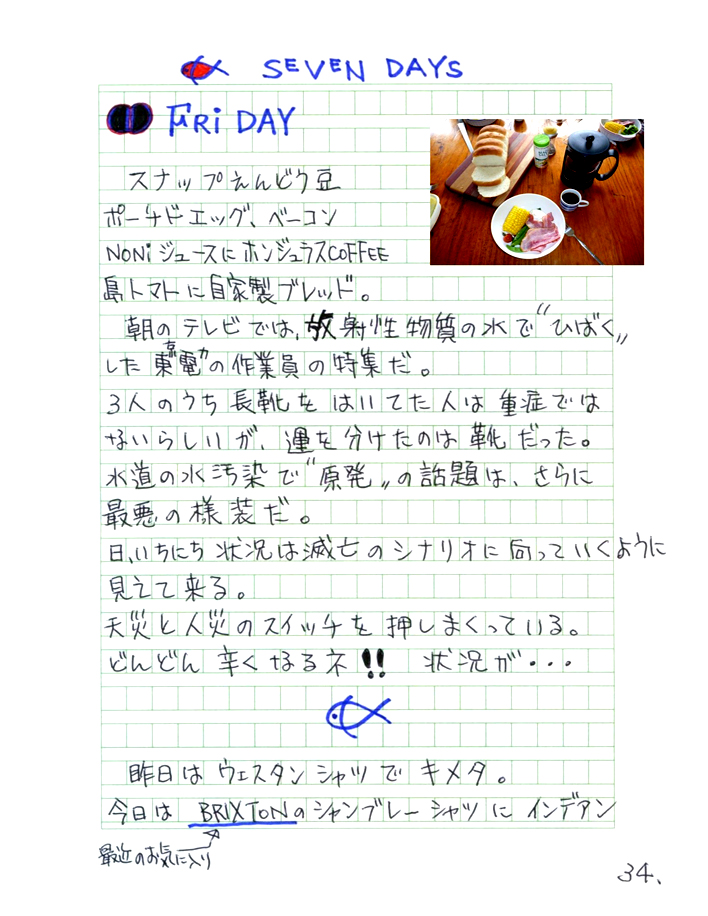 SEVEN DAYS
FRiDAY
スナップえんどう豆
ポーチドエッグ、ベーコン
NONiジュースにホンジュラスCOFFEE
島トマトに自家製ブレッド。
朝のテレビでは、放射性物質の水で“ひばく”
した東京電力の作業員の特集だ。
3人のうち長靴をはいてた人は重症では
ないらしいが、運を分けたのは靴だった。
水道の水汚染で“原発”の話題は、さらに
最悪の様装だ。
日、いちにち状況は滅亡のシナリオに向っていくように
見えて来る。
天災と人災のスイッチを押しまくっている。
どんどん辛くなるネ!! 状況が・・・
昨日はウェスタンシャツでキメタ。
今日はBRIXTONのシャンブレーシャツにインデアン
最近のお気に入り
34、